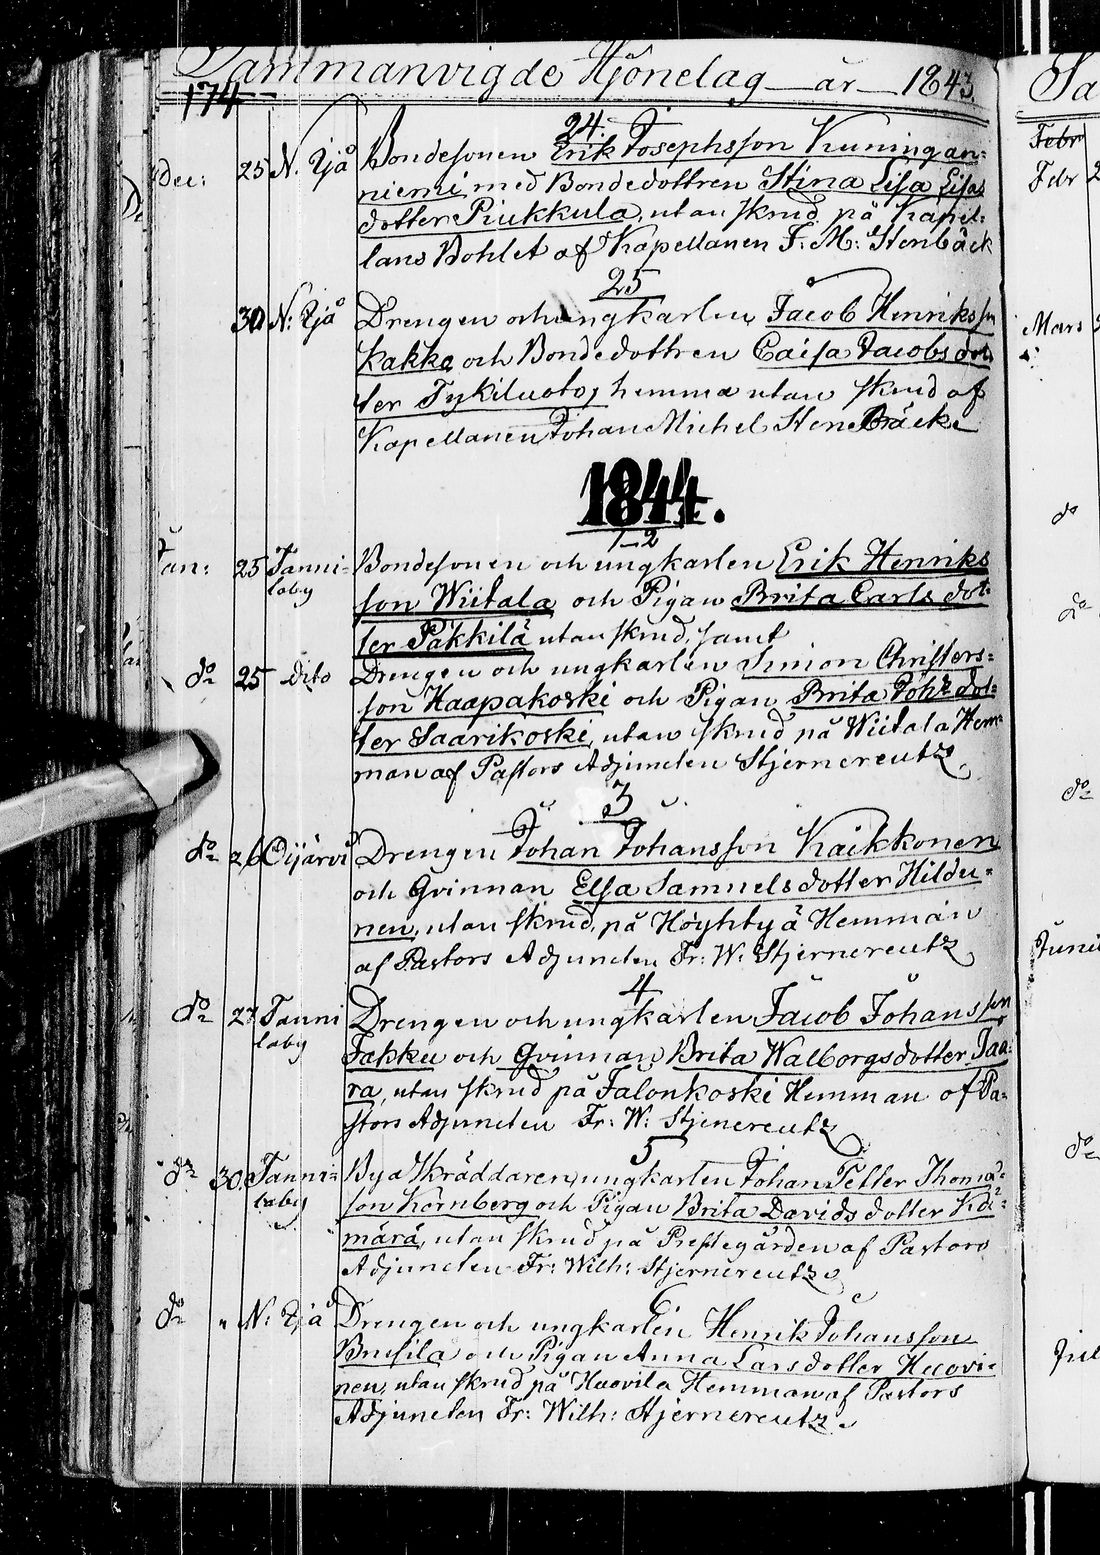 Sammanvigde Hjonelag år 1843.
174
24.
Dec: 25 N. Ijå Bondesonen Erik Josephsson Kuningan-
niemi, med Bondedottren Stina Lisa Lisas
dotter Piukkula, utan skrud på Kapel-
lans Bohlet af Kapellanen J: M: Stenbäck
25
30 N: Ijå Drengen och ungkarlen Jacob Henriksson
Kakko och Bondedottren Caisa Jacobs dot
ter Tykiluoto, hemma utan skrud af
Kapellanen Johan Michel Stenbäck
1844.
1-2
Jan: 25 Tanni- Bondesonen och ungkarlen Erik Henriks
laby son Wiitala och Pigan Brita Carls dot-
ter Päkkilä utan skrud, samt
do 25 dito Drengen och ungkarlen Simon Christers-
son Haapakoski och Pigan Brita Johs dot-
ter Saarikoski, utan skrud på Wiitala Hem-
man af Pastors Adjuncten Stjernereutz.
3
do 26 Oijärvi Drengen Johan Johansson Kaikkonen
och Qvinnan Elsa Samuels dotter Hildu-
nen, utan skrud, på Höyhtyä Hemman
af Pastors Adjuncten Fr: W: Stjernereutz
4
do 27 Tanni Drengen och ungkarlen Jacob Johansson
laby Jakku och Qvinnan Brita Walborgsdotter Jaa-
ra, utan skrud på Jalonkoski Hemman af Pa-
stors Adjuncten Fr: W: Stjernereutz
5
do 30. Tanni- Bya Skräddaren, ungkarlen Johan Petter Thoma-
laby son Kornberg och Pigan Brita Davids dotter Kä-
märä, utan skrud på Prestegården af Pastors
Adjuncten Fr: Wilh: Stjernereutz
6
do " N: Ijå Drengen och ungkarlen Henrik Johansson
Brusila och Pigan Anna Lars dotter Huovi-
nen, utan skrud på Huovila Hemman af Pastors
Adjuncten Fr: Wilh: Stjernereutz.
Sa
Febr
Febr 2
Mars
do
do
do
Junii
do